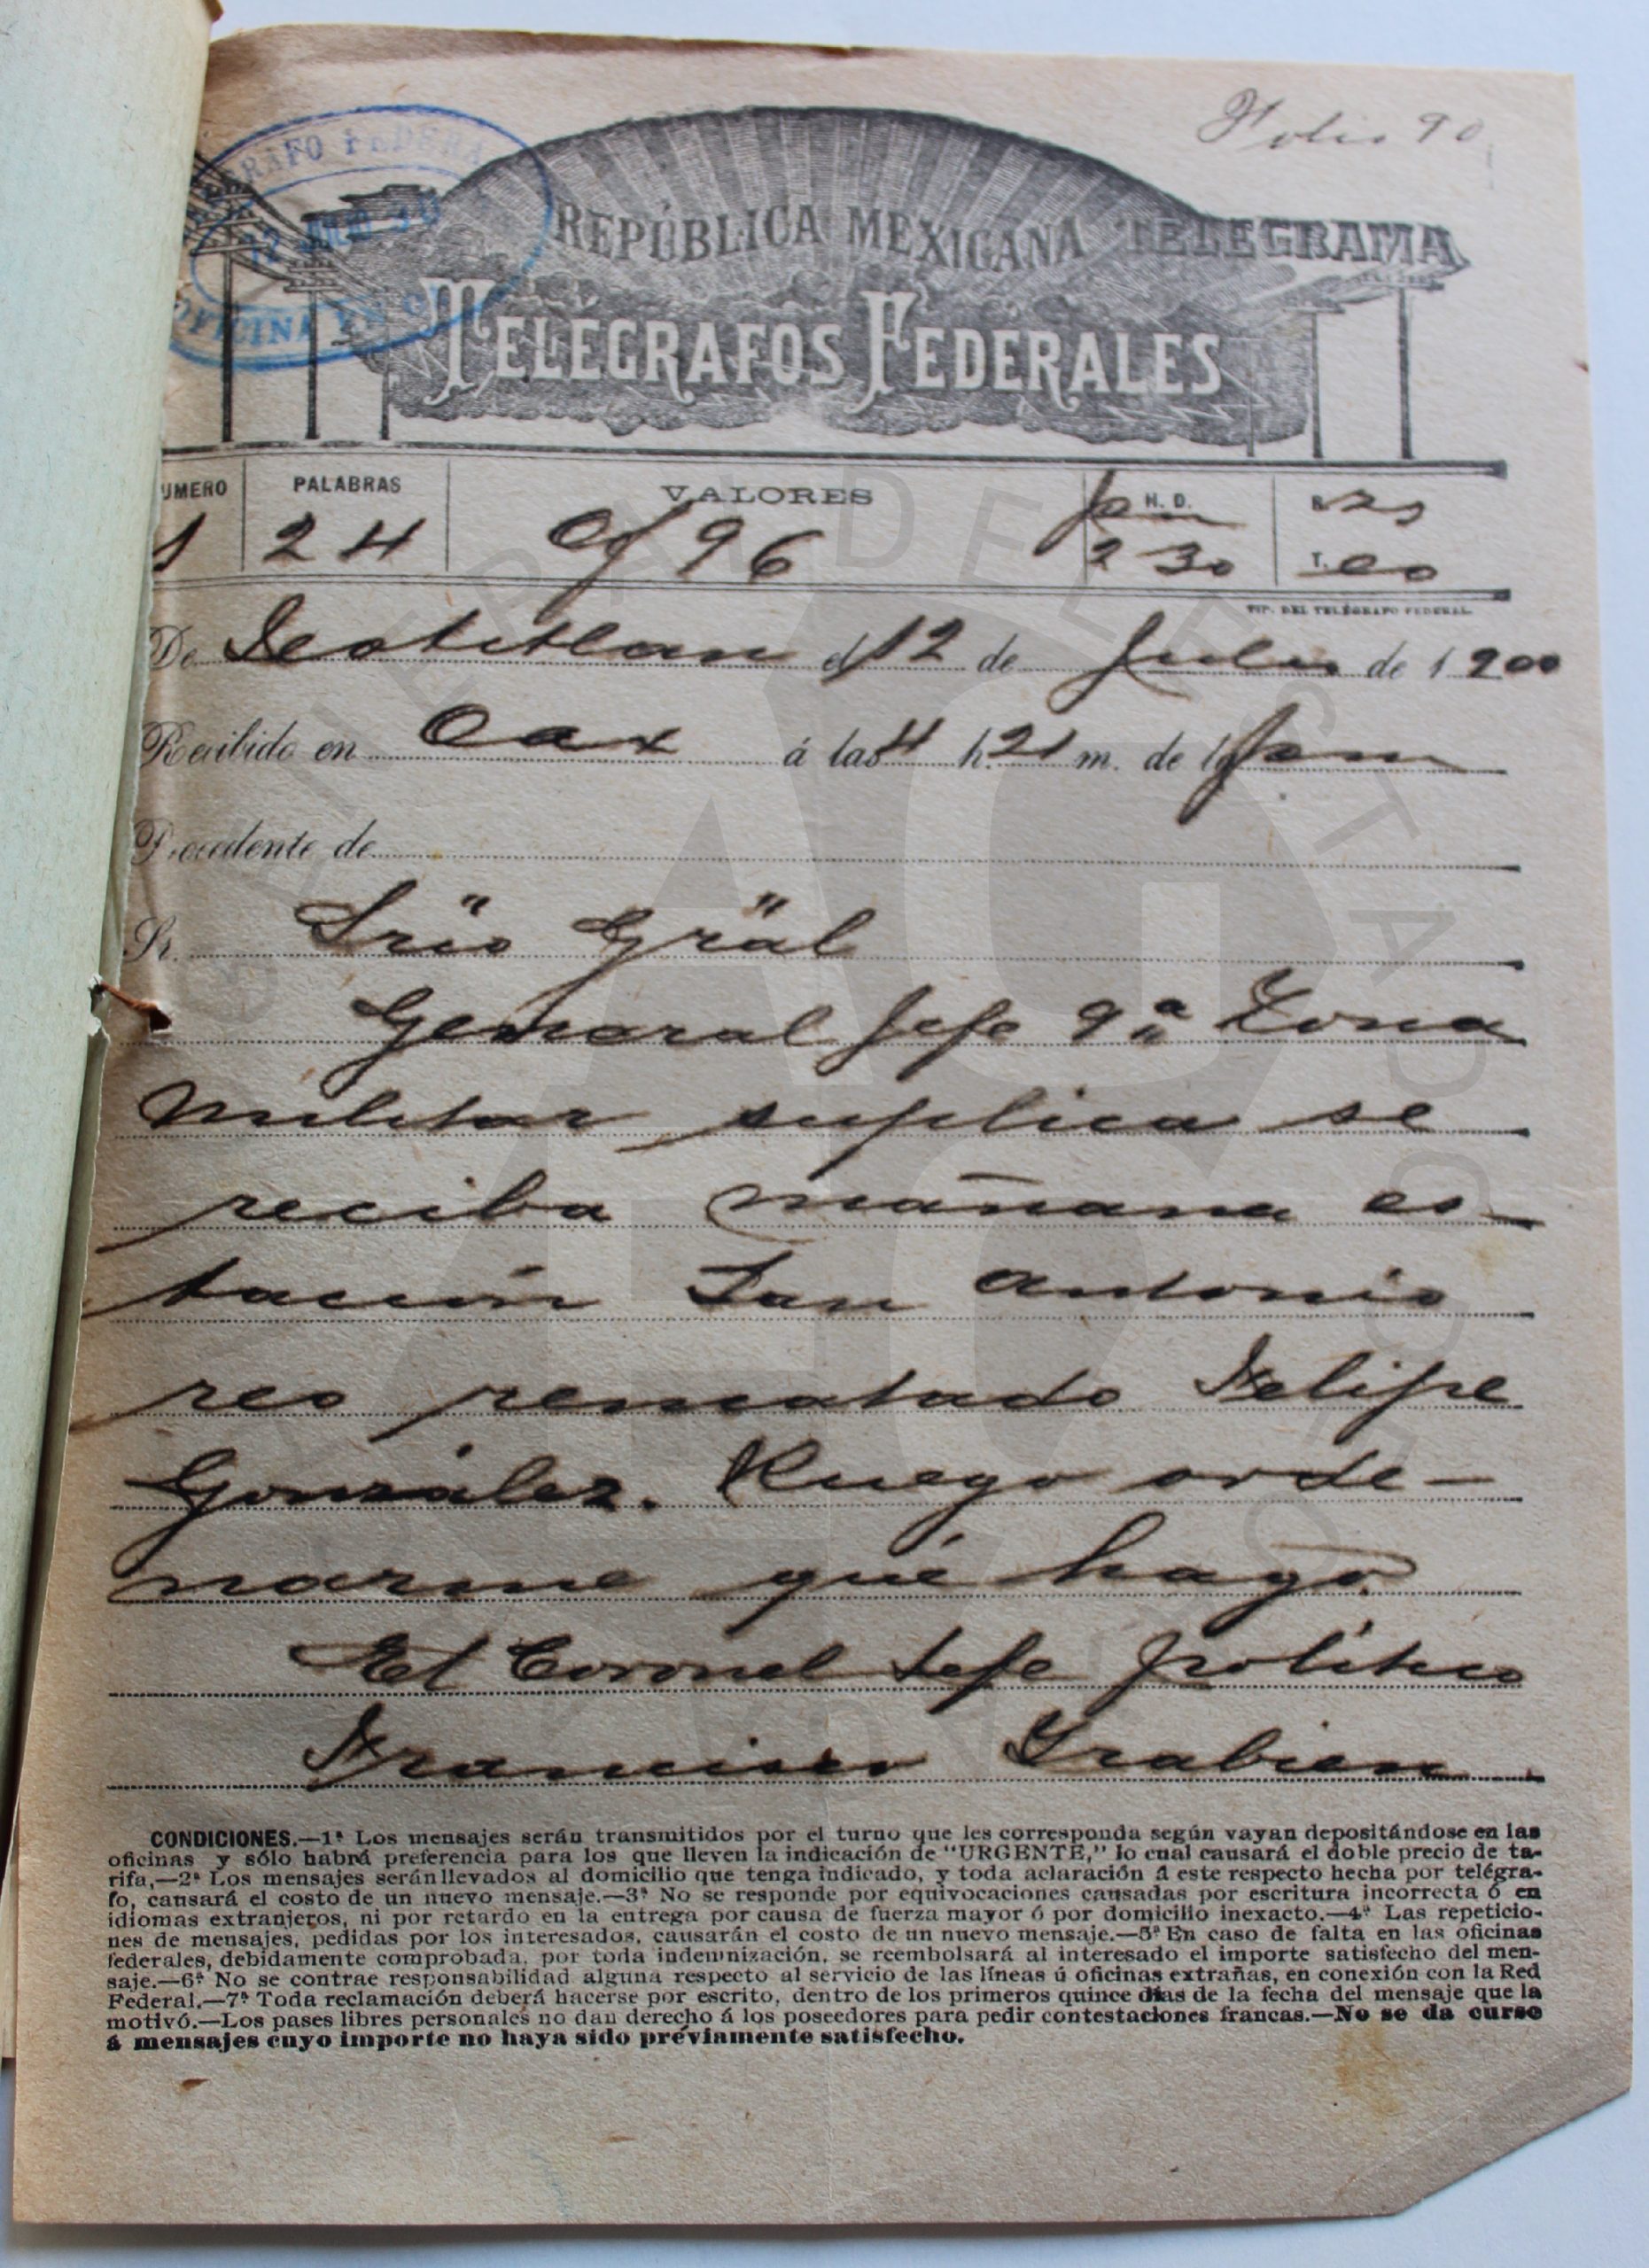 Folio 90
TELEGRAFO FEDERAL
12 JULIO
OFICINA
REPÚBLICA MEXICANA TELEGRAMA
TELÉGRAFOS FEDERALES
UMERO PALABRAS VALORES H. D. R 25
1 24 Of 96 pm 2 30 T. eo
TIP. DEL TELÉGRAFO FEDERAL.
De Teotitlan el 12 de Julio de 1900
Recibido en Oax á las 4 h. 21 m. de la pm
Procedente de
Sr. Srio Gral
General Jefe 9ª Zona
Militar suplica se
reciba mañana es-
tación San Antonio
reo rematado Felipe
González. Ruego orde-
narme qué hago.
El Coronel Jefe político
Francisco Grabien
CONDICIONES.—1ª Los mensajes serán transmitidos por el turno que les corresponda según vayan depositándose en las
oficinas y sólo habrá preferencia para los que lleven la indicación de "URGENTE," lo cual causará el doble precio de ta-
rifa,—2ª Los mensajes serán llevados al domicilio que tenga indicado, y toda aclaración á este respecto hecha por telégra-
fo, causará el costo de un nuevo mensaje.—3ª No se responde por equivocaciones causadas por escritura incorrecta ó en
idiomas extranjeros, ni por retardo en la entrega por causa de fuerza mayor ó por domicilio inexacto.—4ª Las repeticio-
nes de mensajes, pedidas por los interesados, causarán el costo de un nuevo mensaje.—5ª En caso de falta en las oficinas
federales, debidamente comprobada, por toda indemnización, se reembolsará al interesado el importe satisfecho del men-
saje.—6ª No se contrae responsabilidad alguna respecto al servicio de las líneas ú oficinas extrañas, en conexión con la Red
Federal.—7ª Toda reclamación deberá hacerse por escrito, dentro de los primeros quince dias de la fecha del mensaje que la
motivó.—Los pases libres personales no dan derecho á los poseedores para pedir contestaciones francas.—No se da curso
á mensajes cuyo importe no haya sido préviamente satisfecho.